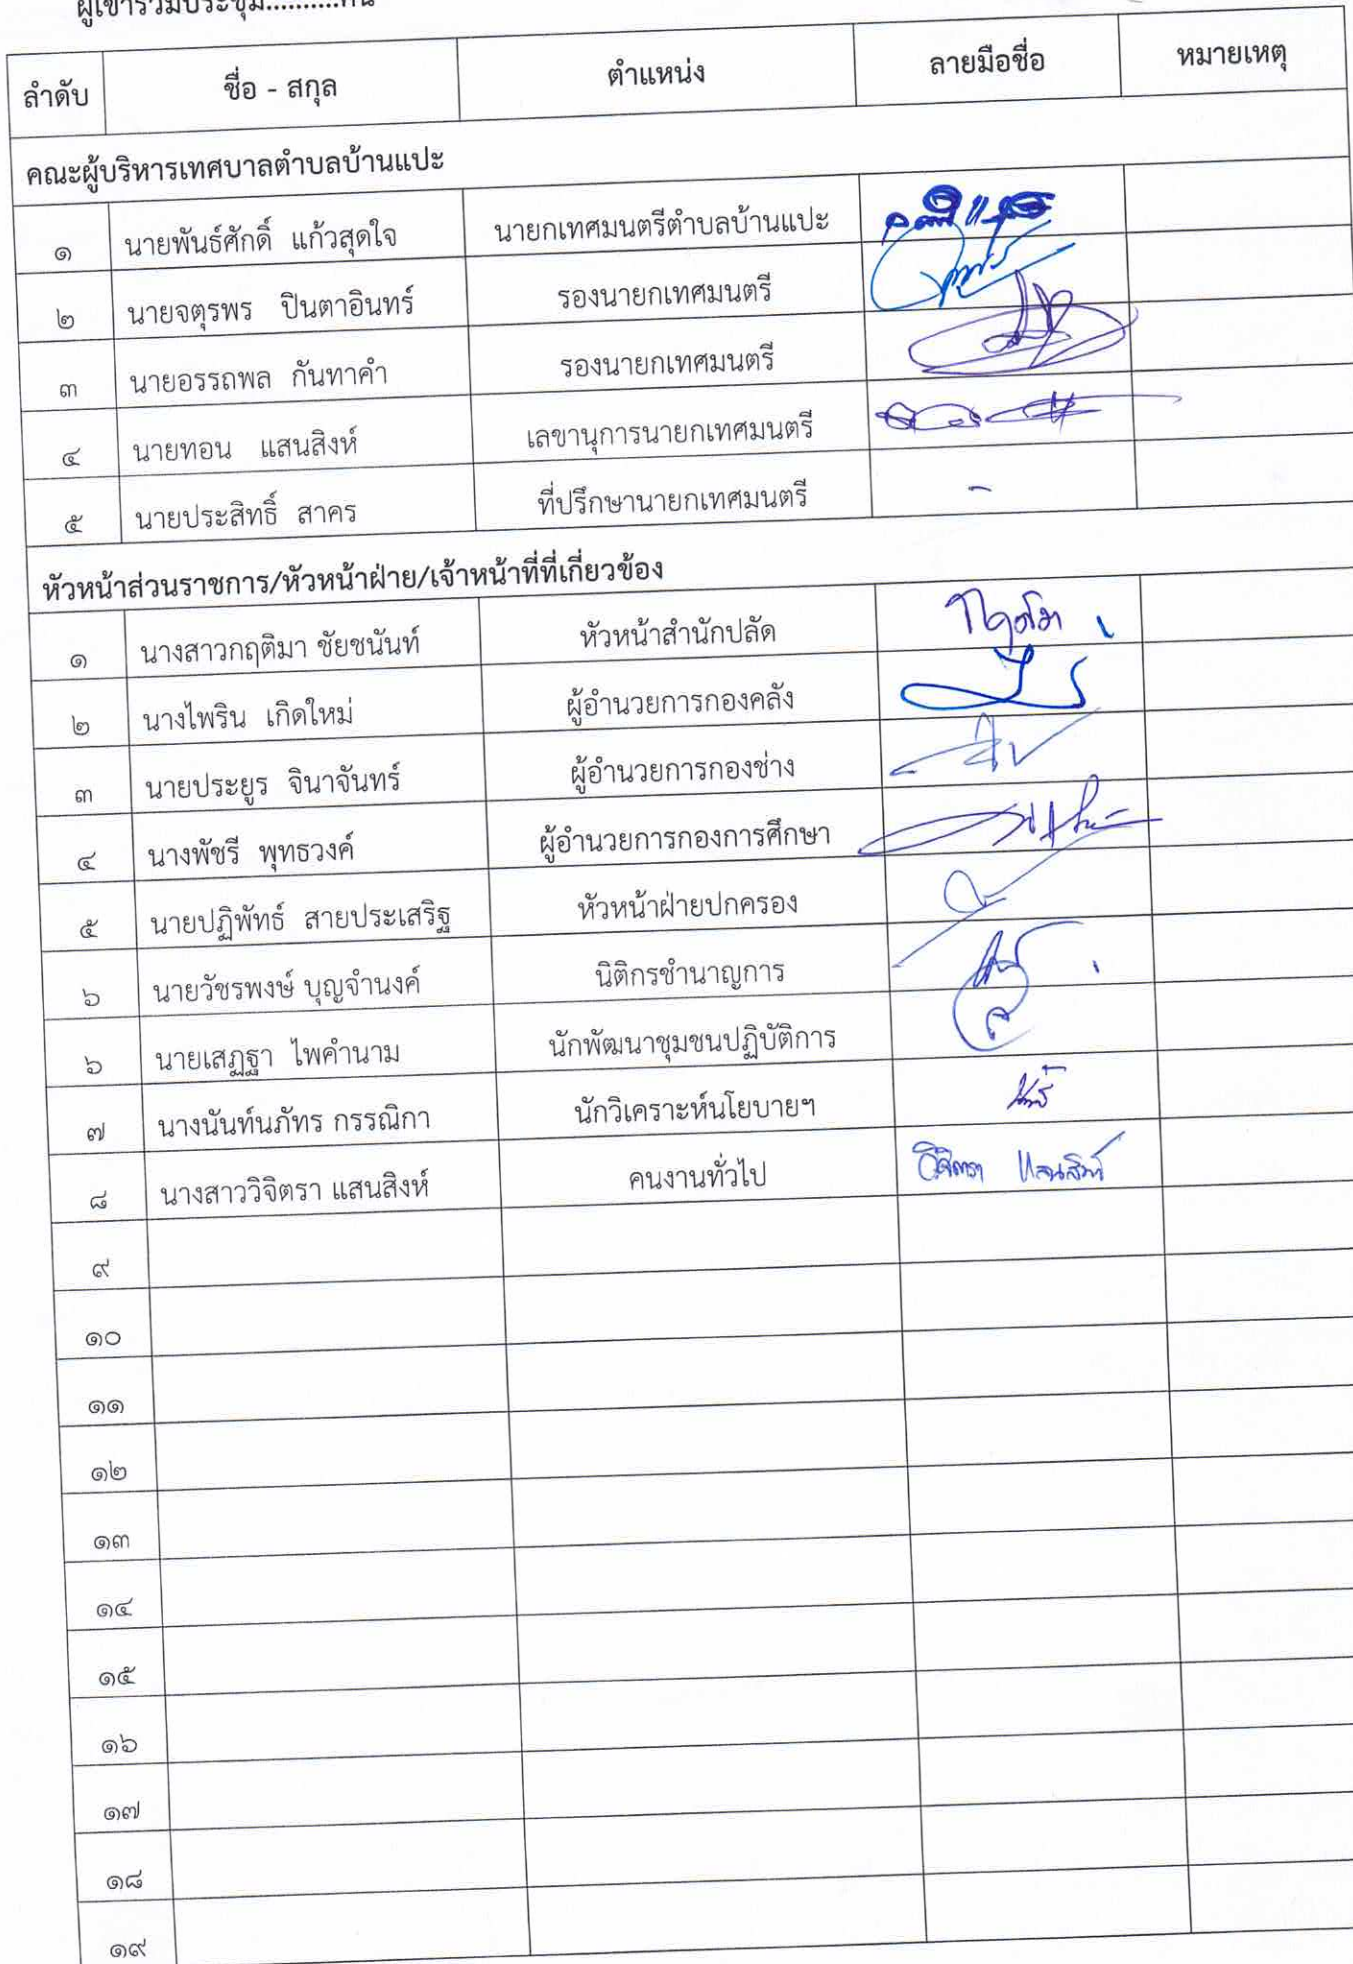 ผู้เข้าร่วมประชุม..........คน
ลำดับ ชื่อ - สกุล ตำแหน่ง ลายมือชื่อ หมายเหตุ
คณะผู้บริหารเทศบาลตำบลบ้านแปะ
๑ นายพันธ์ศักดิ์ แก้วสุดใจ นายกเทศมนตรีตำบลบ้านแปะ
๒ นายจตุรพร ปินตาอินทร์ รองนายกเทศมนตรี
๓ นายอรรถพล กันทาคำ รองนายกเทศมนตรี
๔ นายทอน แสนสิงห์ เลขานุการนายกเทศมนตรี
๕ นายประสิทธิ์ สาคร ที่ปรึกษานายกเทศมนตรี -
หัวหน้าส่วนราชการ/หัวหน้าฝ่าย/เจ้าหน้าที่ที่เกี่ยวข้อง
๑ นางสาวกฤติมา ชัยชนันท์ หัวหน้าสำนักปลัด กฤติมา
๒ นางไพริน เกิดใหม่ ผู้อำนวยการกองคลัง
๓ นายประยูร จินาจันทร์ ผู้อำนวยการกองช่าง
๔ นางพัชรี พุทธวงค์ ผู้อำนวยการกองการศึกษา
๕ นายปฏิพัทธ์ สายประเสริฐ หัวหน้าฝ่ายปกครอง
๖ นายวัชรพงษ์ บุญจำนงค์ นิติกรชำนาญการ
๖ นายเสฏฐา ไพคำนาม นักพัฒนาชุมชนปฏิบัติการ
๗ นางนันท์นภัทร กรรณิกา นักวิเคราะห์นโยบายฯ
๘ นางสาววิจิตรา แสนสิงห์ คนงานทั่วไป วิจิตรา แสนสิงห์
๙
๑๐
๑๑
๑๒
๑๓
๑๔
๑๕
๑๖
๑๗
๑๘
๑๙